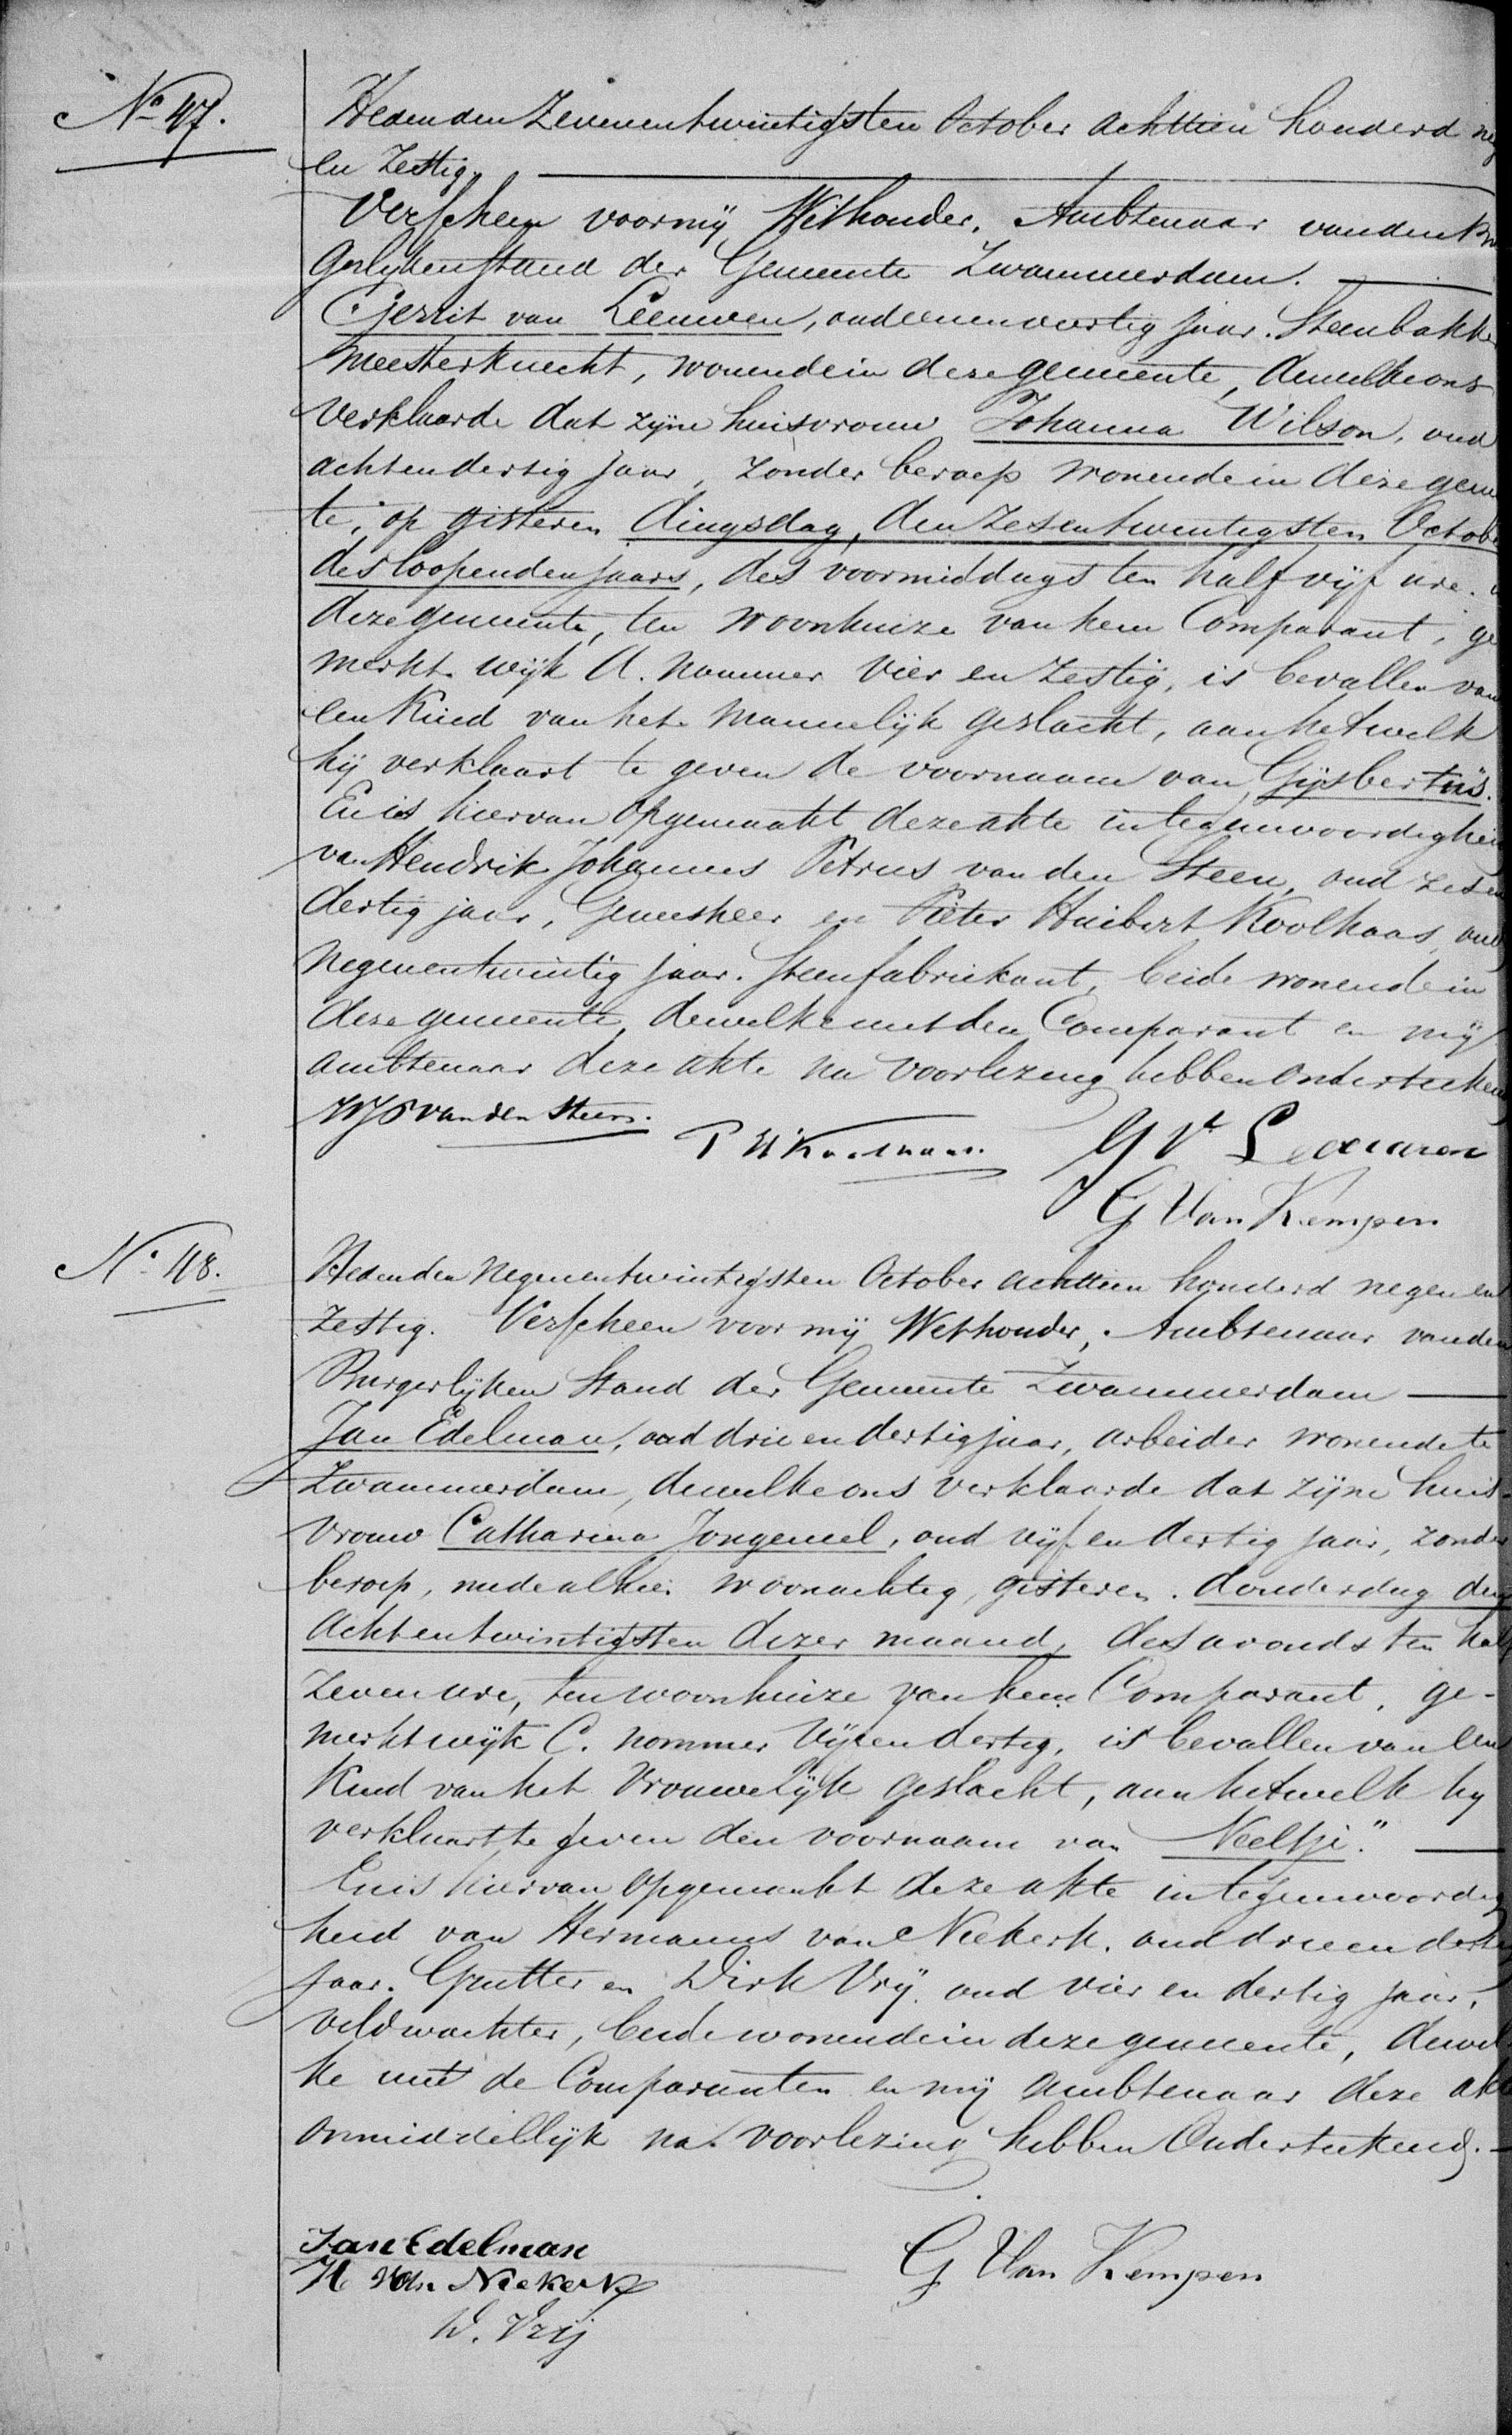 No 47.
Heden den Zevenentwintigsten October achttien honderd neg
en Zestig.
Verscheen voor mij Wethouder, Ambtenaar van den Bur
gerlijken Stand der Gemeente Zwammerdam.
Gerrit van Leeuwen, oud eenenveertig jaar. Steenbakke
meesterknecht, wonende in deze gemeente, dewelke ons
verklaarde dat zijne huisvrouw Johanna Wilson, oud
achtendertig jaar, zonder beroep wonende in deze gemeen
te, op gisteren dingsdag, den zesentwintigsten Octob
des loopenden jaars, des voormiddags ten half vijf ure.
deze gemeente, ten woonhuize van hem Comparant, ge
merkt wijk A. nommer vier en zestig, is bevallen van
een Kind van het mannelijk geslacht, aan hetwelk
hij verklaart te geven de voornaam van Gijsbertus.
En is hiervan opgemaakt deze akte in tegenwoordighei
van Hendrik Johannes Petrus van den Steen, oud zesen
dertig jaar, Geneesheer en Pieter Huibert Koolhaas, oud
negenentwintig jaar. Steenfabriekant, beide wonende in
deze gemeente, dewelke met den Comparant en mij
ambtenaar deze akte na voorlezing hebben onderteeken
HJP van den Steen.
P H Koolhaas.
G V Leeuwen
G Van Kempen
No 48.
Heden den negenentwintigsten October achttien honderd negen en
zestig. Verscheen voor mij Wethouder, Ambtenaar van den
Burgerlijken Stand der Gemeente Zwammerdam
Jan Edelman, oud drie en dertig jaar, arbeider wonende te
Zwammerdam, dewelke ons verklaarde dat zijne huis-
vrouw Catharina Jongeneel, oud vijf en dertig jaar, zonder
beroep, mede alhier woonachtig, gisteren. donderdag den
achtentwintigsten dezer maand, des avonds ten half
zeven ure, ten woonhuize van hem Comparant, ge-
merkt wijk C. nommer vijfendertig, is bevallen van een
Kind van het Vrouwelijk geslacht, aan hetwelk hij
verklaart te geven den voornaam van Neeltje."
En is hiervan opgemaakt deze akte in tegenwoordig
heid van Hermanus van Niekerk. oud drieendertig
jaar. Grutter en Dirk Vrij. oud vier en dertig jaar,
veldwachter, beide wonende in deze gemeente, dewel
ke met de Comparanten en mij ambtenaar deze akt
onmiddellijk na voorlezing hebben Onderteekend.
Jan Edelman
H van Niekerk
D. Vrij
G Van Kempen